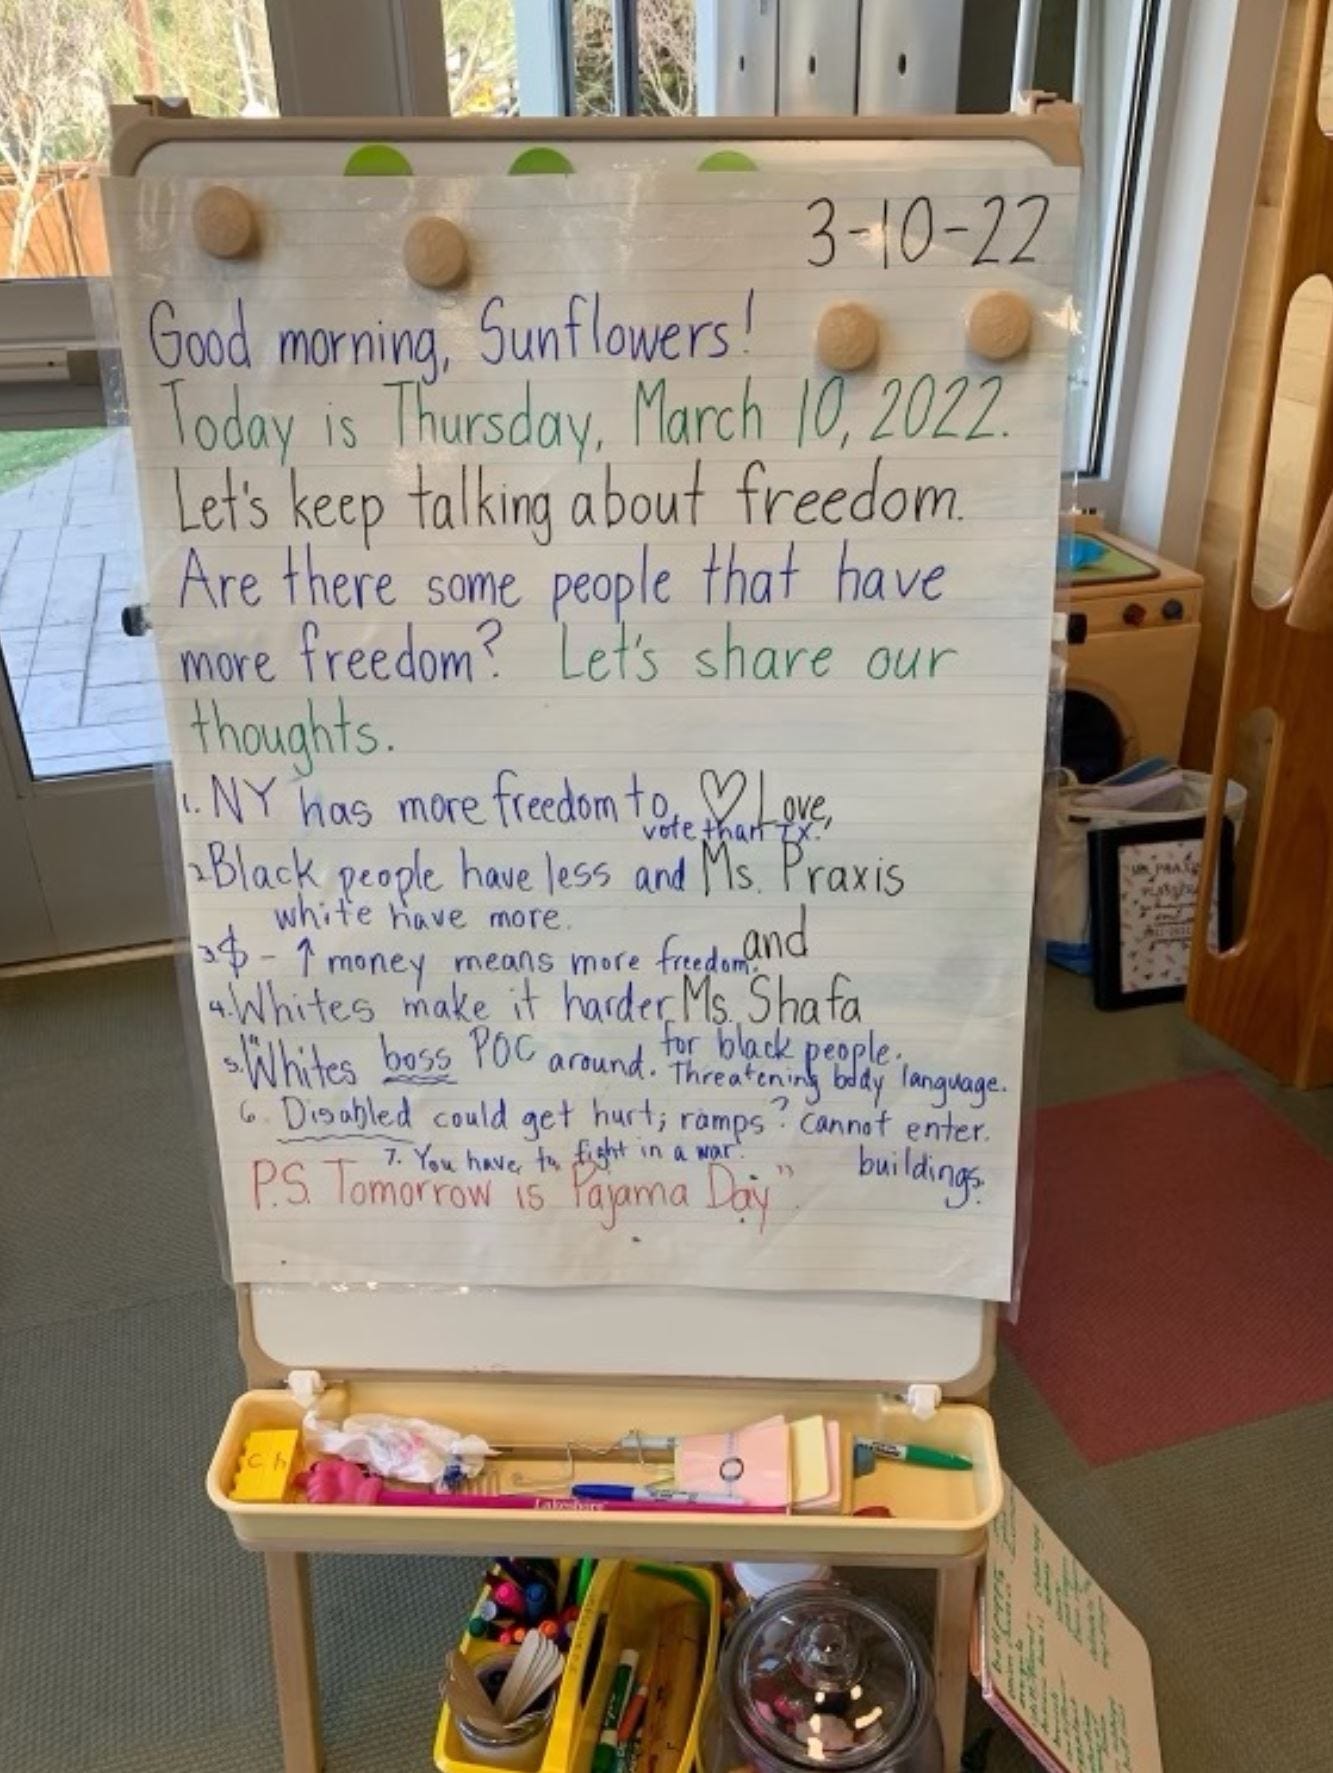 3-10-22
Good morning, Sunflowers!
Today is Thursday, March 10, 2022.
Let's keep talking about freedom.
Are there some people that have
more freedom? Let's share our
thoughts.
1. NY has more freedom to
vote than TX.
♡ Love,
2. Black people have less and
white have more.
Ms. Praxis
3. $ - ↑ money means more freedom.
and
4. Whites make it harder
for black people.
Ms. Shafa
5. Whites boss POC around. Threatening body language.
6. Disabled could get hurt; ramps? cannot enter.
buildings.
7. You have to fight in a war.
P.S. Tomorrow is Pajama Day".
ch
Lakeshore